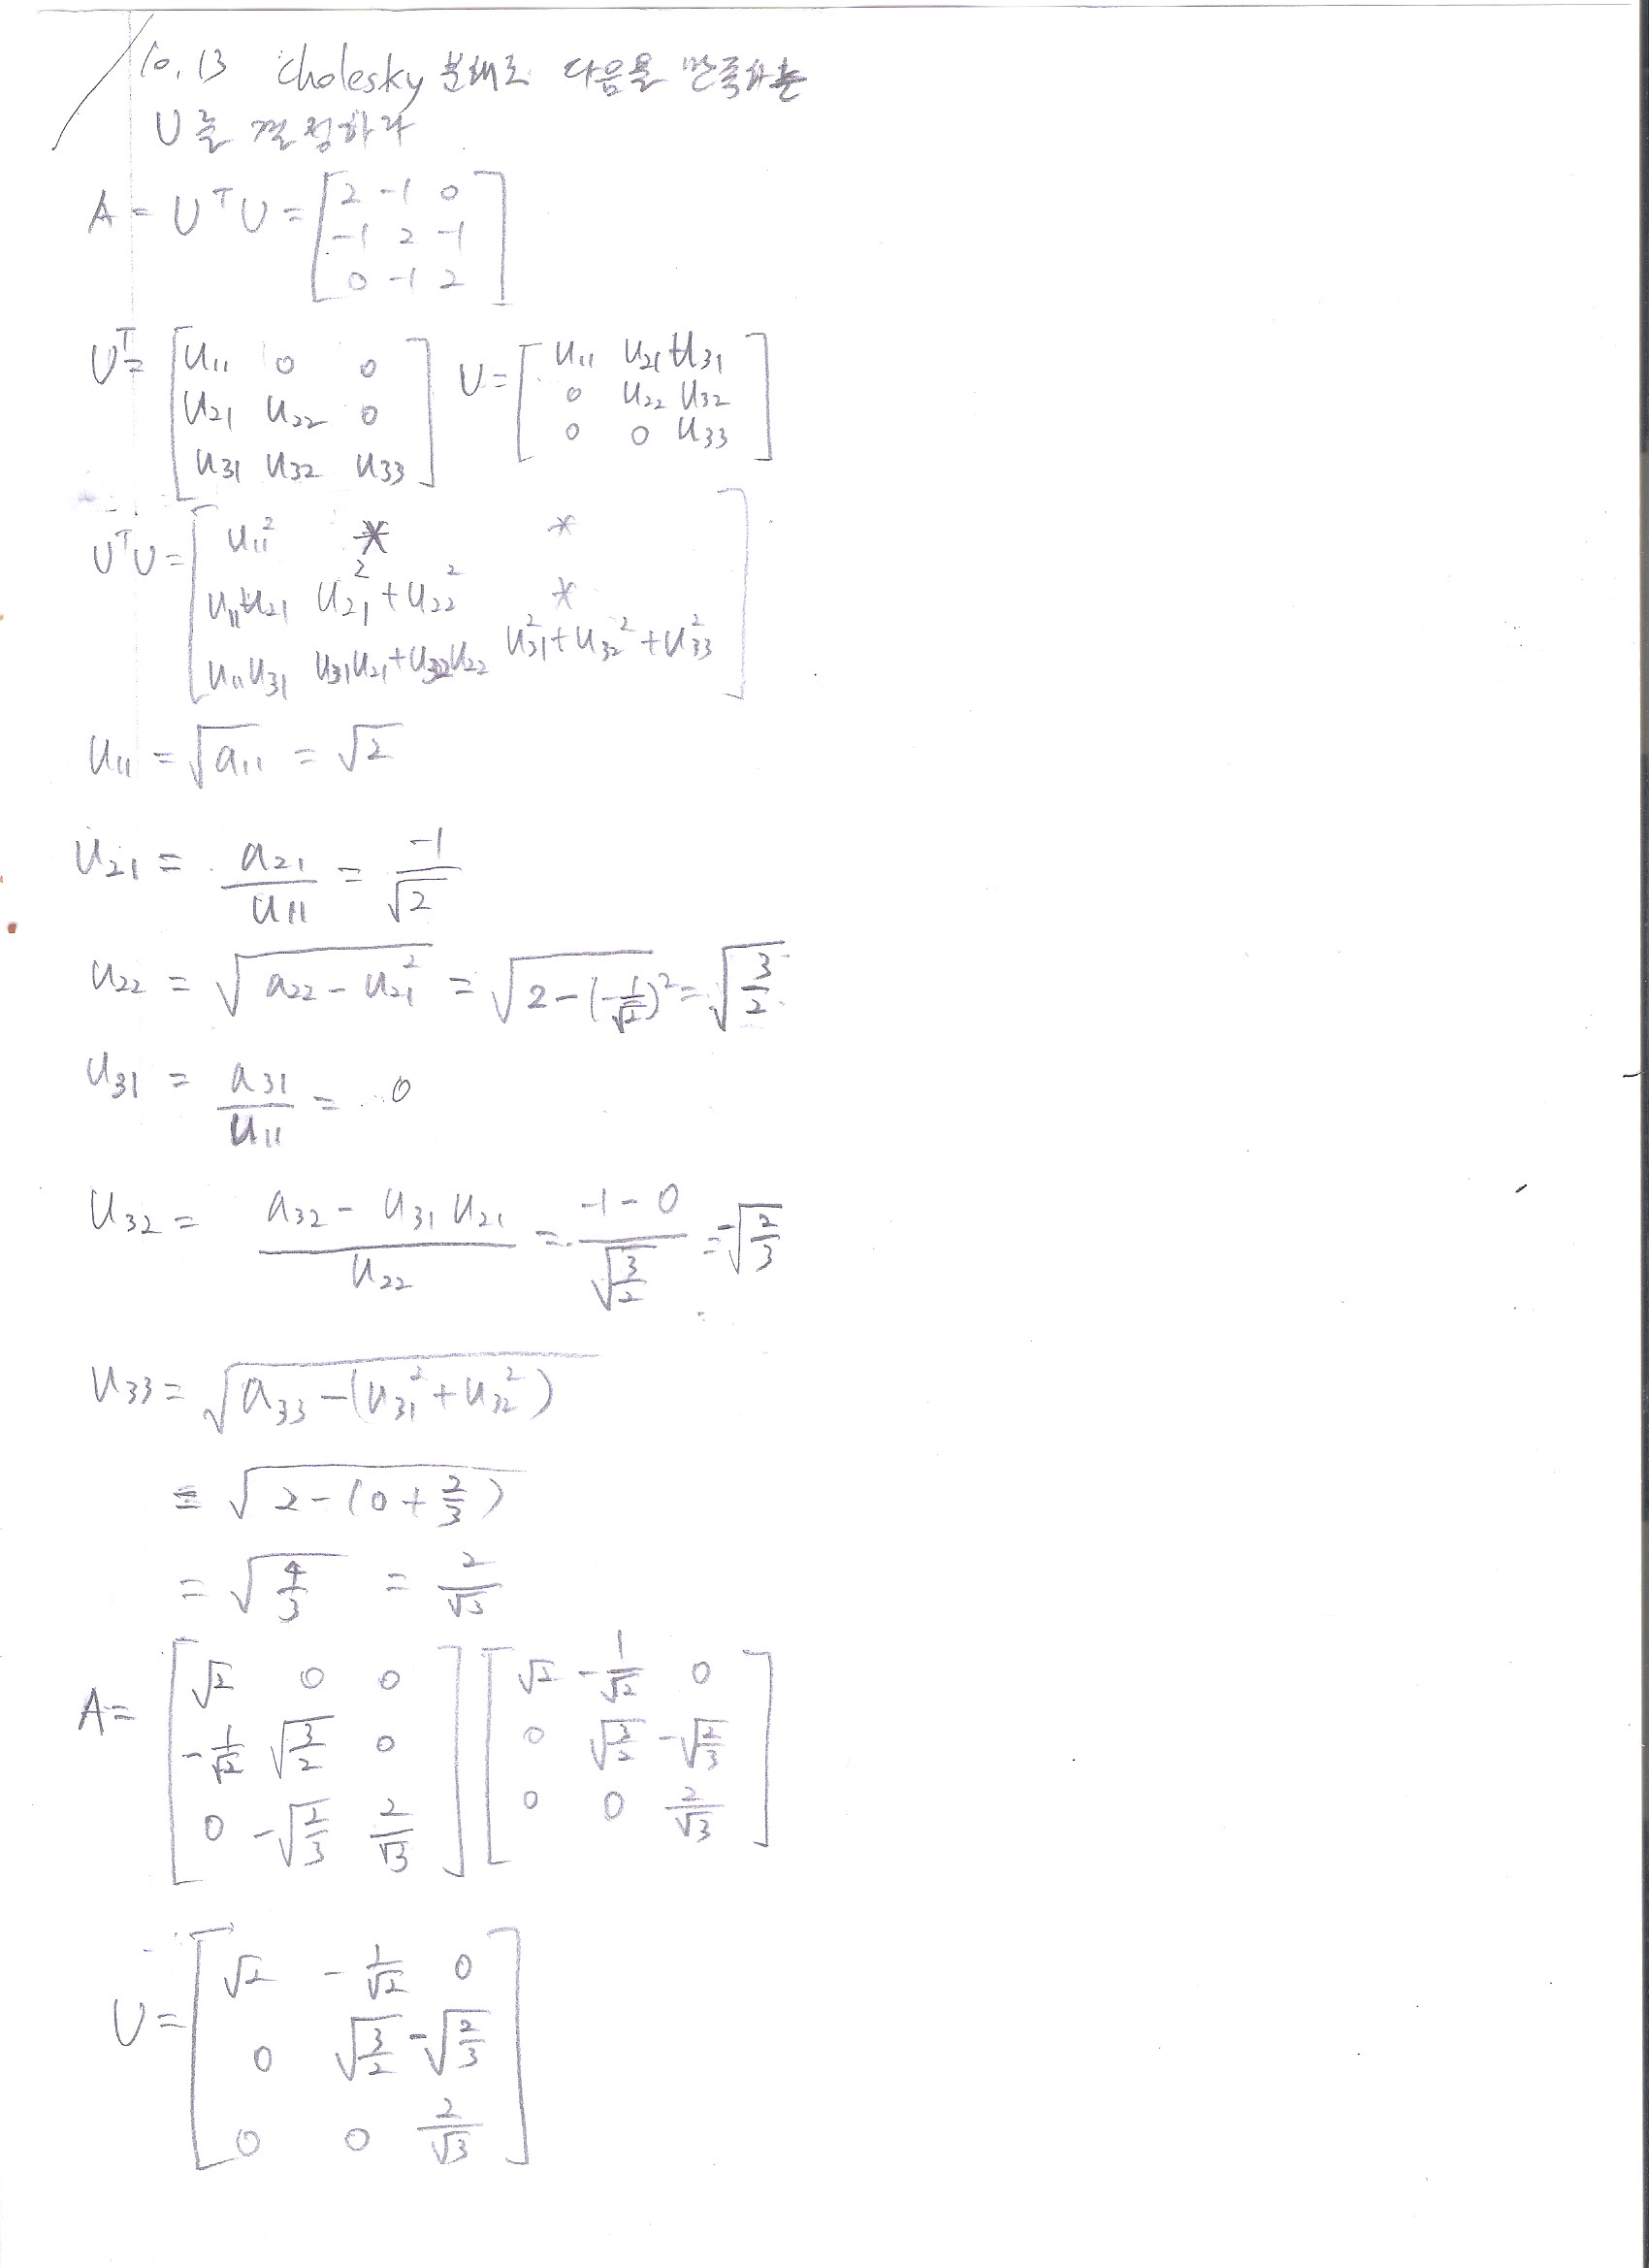 10.13 cholesky 분해로 다음을 만족하는
U를 결정하라
A = U^T U = [2 -1 0
-1 2 -1
0 -1 2]
U^T = [u11 0 0 U = [u11 u21 u31
u21 u22 0 0 u22 u32
u31 u32 u33] 0 0 u33]
U^T U = [u11^2 * *
u11 u21 u21^2 + u22^2 *
u11 u31 u31 u21 + u32 u22 u31^2 + u32^2 + u33^2]
u11 = √a11 = √2
u21 = a21/u11 = -1/√2
u22 = √(a22 - u21^2) = √(2-(-1/√2)^2) = √(3/2)
u31 = a31/u11 = 0
u32 = (a32 - u31 u21)/u22 = (-1-0)/√(3/2) = -√(2/3)
u33 = √(a33 - (u31^2 + u32^2))
= √(2-(0+2/3))
= √(4/3) = 2/√3
A = [√2 0 0 [√2 -1/√2 0
-1/√2 √(3/2) 0 0 √(3/2) -√(2/3)
0 -√(2/3) 2/√3] 0 0 2/√3]
U = [√2 -1/√2 0
0 √(3/2) -√(2/3)
0 0 2/√3]